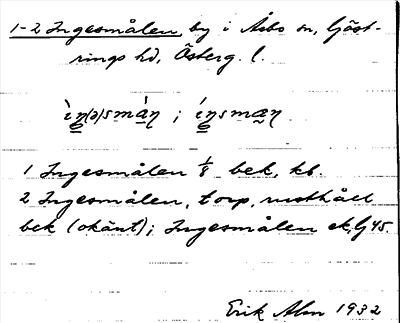 1-2 Ingesmålen, by i Åsbo sn, Göst-
rings hd, Österg. l.
ìŋ(ə)smàn ; íŋsman
1 Ingesmålen 1/8 bek, kb.
2 Ingesmålen, torp, rusthåll
bek (okänt); Ingesmålen ek, Gj 45.
Erik Alm 1932